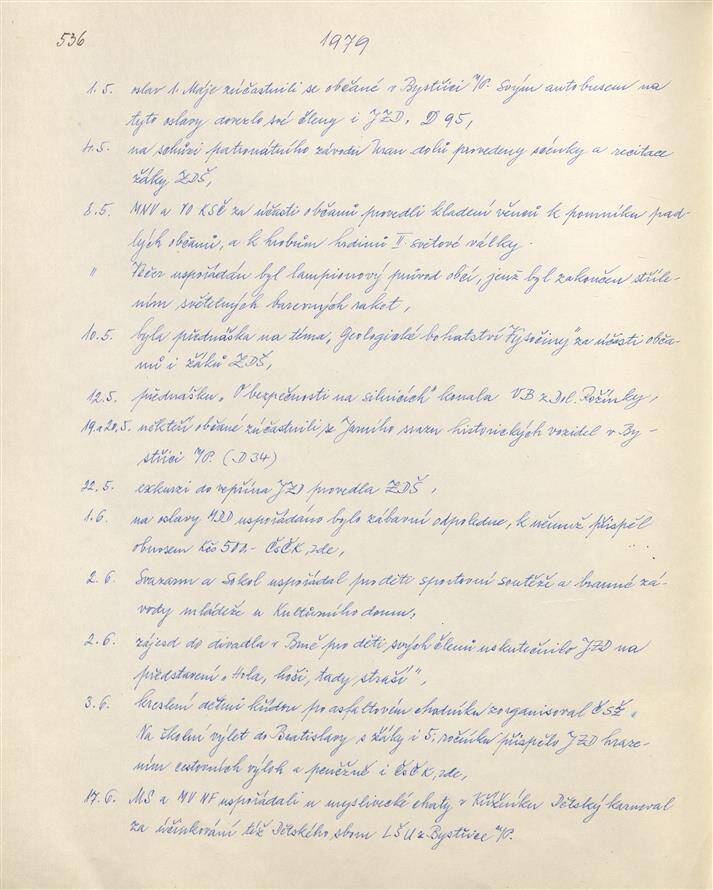 536
1979
1.5. oslav 1. Máje zúčastnili se občané v Bystřici n/P. Svým autobusem na
tyto oslavy dovezlo své členy i JZD. D 95,
4.5. na schůzi patronátního závodu Uran. dolů provedeny scénky a recitace
žáky ZDŠ,
8.5. MNV a VO KSČ za účasti občanů provedli kladení věnců k pomníku pad-
lých občanů, a k hrobům hrdinů II. světové války.
" Večer uspořádán byl lampionový průvod obcí, jenž byl zakončen stříle-
ním světelných barevných raket,
10.5. byla přednáška na téma „Geologické bohatství Vysočiny" za účasti obča-
nů i žáků ZDŠ,
12.5. přednášku „O bezpečnosti na silnicích" konala VB z Dol. Rožínky,
19. a 20.5. někteří občané zúčastnili se Jarního srazu historických vozidel v By-
střici n/P. (D 34)
22.5. exkurzi do vepřína JZD provedla ZDŠ,
1.6. na oslavy MDD uspořádáno bylo zábavní odpoledne, k němuž přispěl
obnosem Kčs 500.- ČsČK, zde,
2.6. Svazarm a Sokol uspořádal pro děti sportovní soutěže a branné zá-
vody mládeže u Kulturního domu,
2.6. zájezd do divadla v Brně pro děti svých členů uskutečnilo JZD na
představení „Hola, hoši, tady straší",
3.6. kreslení dětmi křídou po asfaltovém chodníku zorganisoval ČSŽ „
Na školní výlet do Bratislavy s žáky i 5. ročníku přispělo JZD hraze-
ním cestovních výloh a peněžně i ČsČK, zde,
17.6. MS a MV NF uspořádali u myslivecké chaty v Kříženku Dětský karneval
za účinkování též Dětského sboru LŠU z Bystřice n/P.